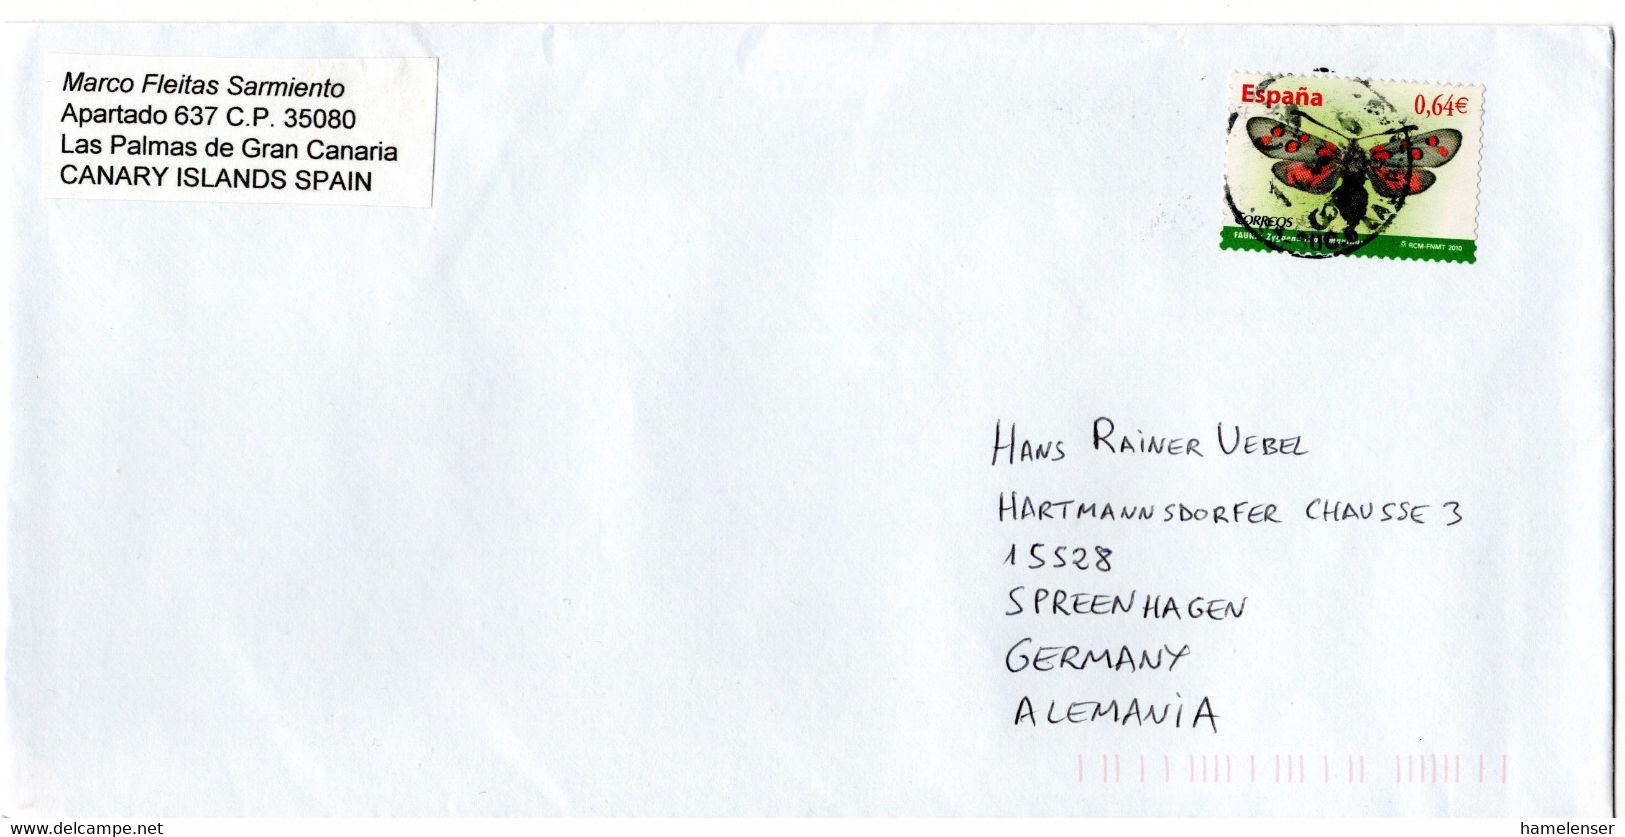 Marco Fleitas Sarmiento
Apartado 637 C.P. 35080
Las Palmas de Gran Canaria
CANARY ISLANDS SPAIN
España
0,64€
CORREOS
FAUNA
RCM-FNMT 2010
HANS RAINER UEBEL
HARTMANNSDORFER CHAUSSE 3
15528
SPREENHAGEN
GERMANY
ALEMANIA
www.delcampe.net
hamelenser